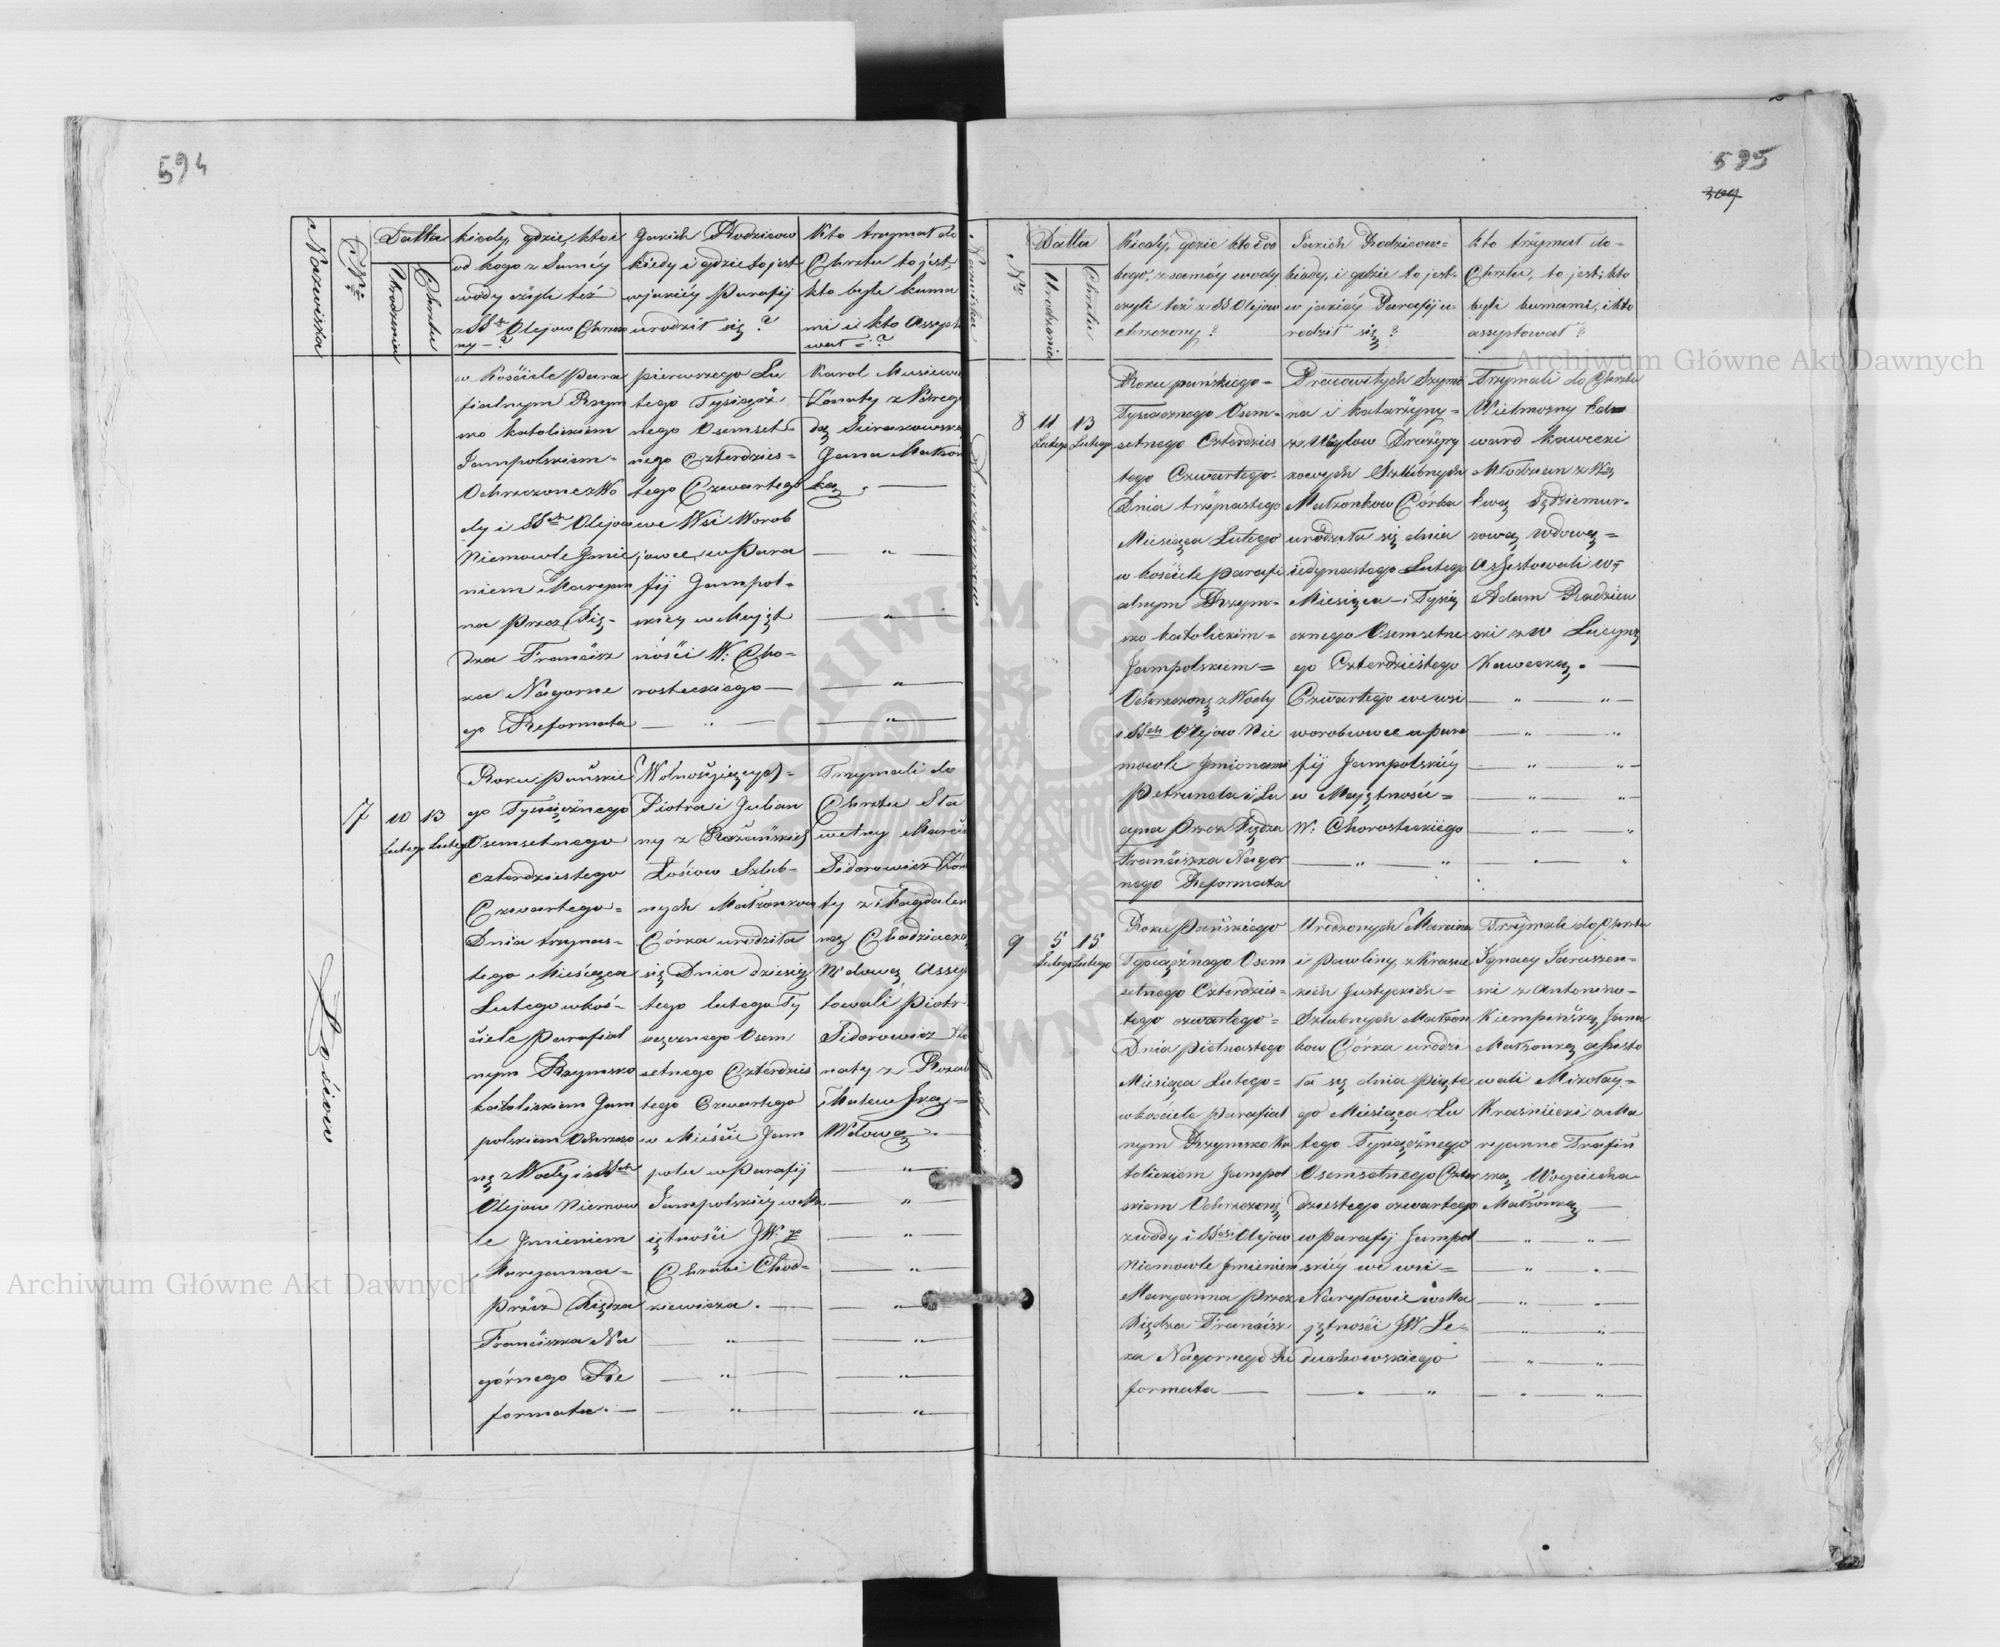 594
Nazwiska
Nr
Datta
Urodzenia
Chrztu
kiedy, gdzie, kto i
od kogo z Saméy
wody czyli też
z SS. Olejow Chrzczo
ny - ?
Jakich Rodzicow
kiedy i gdzie to jest
w jakiéy Parafij
urodzit się ?
Kto trzymat do
Chrztu to jest,
kto byli kuma
mi i kto Assysto
wat = ?
w Kościele Para
fialnym Rzym
sko katolickim
Jampolskim -
Ochrzczone z Wo
dy i SSch Olejow
Niemowle Jmie
niem Maryan
na przez Xię-
dza Francisz
ka Nagorne
go Reformata
pierwszego Lu
tego Tysiącz
nego Osemset-
nego Czterdzies-
tego Czwartego
we Wsi Worob
jowce, w Para
fij Jampol-
skiey w Mająt
ności W: Cho-
rosteckiego
Karol
Żonaty z
Jana Matżon
ką.
7
10 Lutego
13 Lutego
Łosiow
Roku Pańskie
go Tysiącznego
Osemsetnego
czterdziestego
Czwartego =
Dnia trzynas-
tego Miesiąca
Lutego w Koś-
ciele Parafial
nym Rzymsko
katolickim Jam
polskim Ochrzczo
ną z Wody i z SSch
Olejow Niemow
le Jmieniem
Maryanna =
przez Xiędza
Franciszka Na
górnego Re
formata. -
Wolnożyjących =
Piotra i Julian
ny z Rożańskich
Łosiow Szlub-
nych Matżonkow
Córka urodzita
się Dnia dziesią
tego Lutego Ty
sącznego Osem
setnego Czterdzies
tego Czwartego
w Mieście Jam
polu w Parafij
Jampolskiéy w Ma
iętności JW:
Chrabi Chod=
kiewicza.
Trzymali do
Chrztu Sta
wetny Marcin
Sidorowicz Żona
ty z Magdalen
ną Chodziacką
Wdową, Assys
towali Piotr
Sidorowicz Żo
naty z
Wdową.
595
Nazwiska
Nr
Datta
Urodzenia
Chrztu
Kiedy, gdzie kto i od
kogo, z saméy wody
czyli też z SS Olejow
chrzczony ?
Jakich Rodzicow =
kiedy, i gdzie to jest
w jakiéy Parafij u
rodzit się ?
kto trzymat do -
Chrztu, to jest; kto
byli kumami, i kto
assystowat ?
8
11 Lutego
13 Lutego
Roku pańskiego =
Tysiacznego Osem-
setnego Czterdzies
tego Czwartego -
Dnia trzynastego
Miesiąca Lutego
w kościele parafi
alnym Rzym-
sko katolickim =
Jampolskiem =
Ochrzczoną z Wody
i SSch Olejow Nie
mowle Jmionami
Petrunela i Lu
cyna przez Xiędza
Franciszka Nagor
nego Reformata
Pracowitych Szymo
na i Katarzyny -
Szlubnych
Matżonkow Córka
urodzita się dnia
iedynastego Lutego
Miesiąca - Tysią
cznego Osemsetne
go Czterdziestego
Czwartego we wsi
worobiowce w para
fij Jampolskiéy
w Majętności =
W: Chorosteckiego
Trzymali do Chrztu
Wielmożny Ed=
ward Kawecki
Młodzian z W
Ewą Sędzimir-
rową wdową =
Assystowali W:
Adam Radziew
ski z W Lucyną
Kawecką. -
9
5 Lutego
15 Lutego
Roku Pańskiego
Tysiącznego Osem
setnego Czterdzies-
tego czwartego =
Dnia pietnastego
Miesiąca Lutego =
w kościele parafial
nym Rzymsko Ka
tolickim Jampol
skiem Ochrzczoną
z wody i SSch Olejow
Niemowle Jmieniem
Maryanna przez
Xiędza Francisz
ka Nagornego Re
formata
Urodzonych Marcina
i pawliny z Krasuc
kich Justyckich =
Szlubnych Matżon
kow Córka urodzi
ta się dnia piąte
go Miesiąca Lu
tego Tysiącznego
Osemsetnego Czter
dziestego czwartego
w Parafij Jampol
skiéy we wsi =
Narytowie w Ma
jętności JW Le-
duchowskiego
Trzymali do Chrztu
Jgnacy Jaruszew-
ski z Antonino-
Kiempińską Jana
Matżonką Assysto
wali Mikotay -
Kraśnicki z Ma
ryanno Trafiń
ską, Woyciecha
Matżonką
Archiwum Główne Akt Dawnych
Archiwum Główne Akt Dawnych